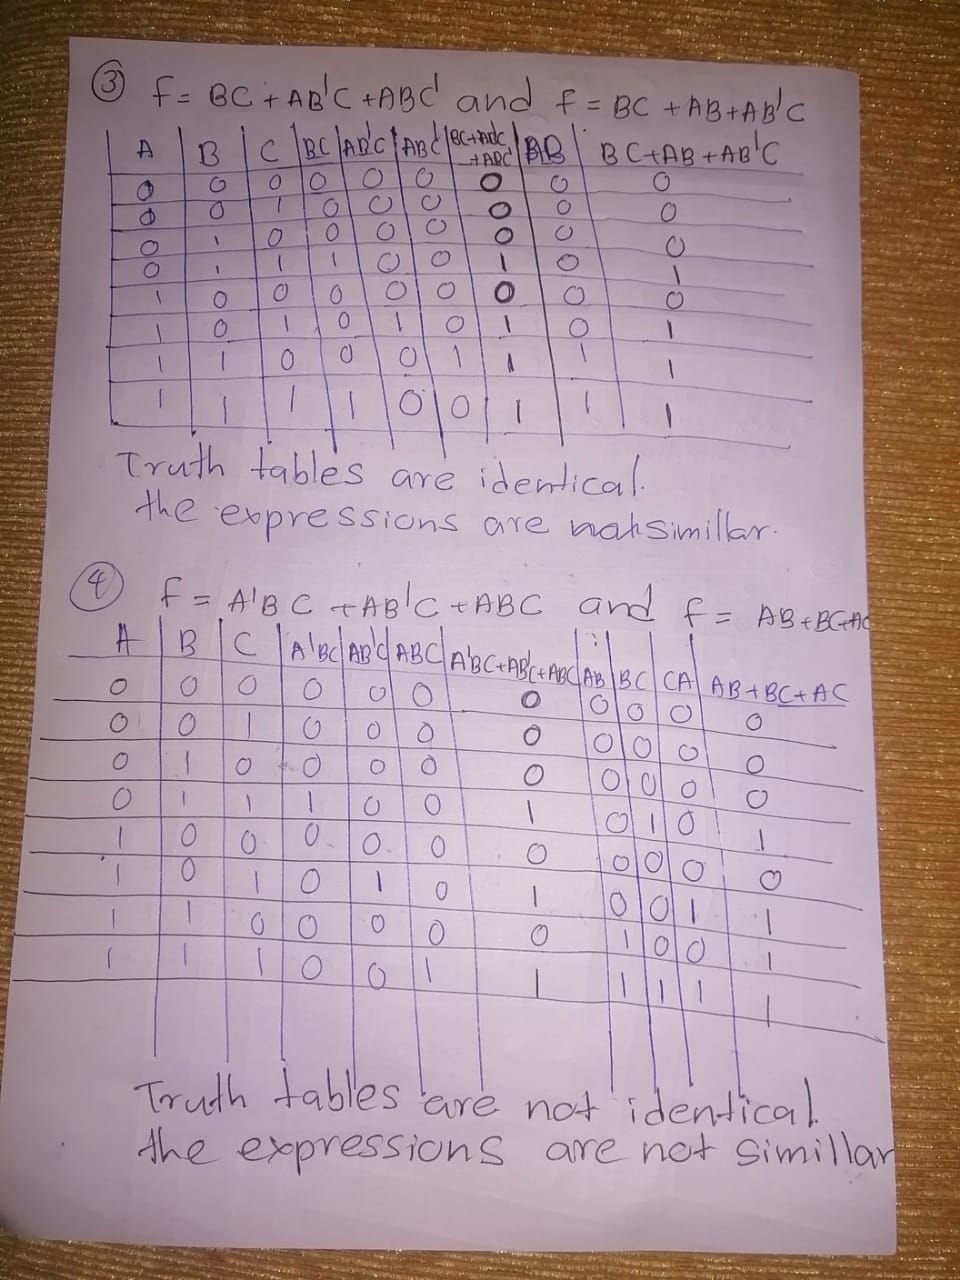 ③ f = BC + AB'C + ABC' and f = BC + AB + AB'C
A B C BC AB'C ABC' BC+AB'C+ABC' AB BC+AB+AB'C
0 0 0 0 0 0 0 0 0
0 0 1 0 0 0 0 0 0
0 1 0 0 0 0 0 0 0
0 1 1 1 0 0 1 0 1
1 0 0 0 0 0 0 0 0
1 0 1 0 1 0 1 0 1
1 1 0 0 0 1 1 1 1
1 1 1 1 0 0 1 1 1
Truth tables are identical.
the expressions are simillar.
④ f = A'BC + AB'C + ABC and f = AB+BC+AC
A B C A'BC AB'C ABC A'BC+AB'C+ABC AB BC CA AB+BC+AC
0 0 0 0 0 0 0 0 0 0 0
0 0 1 0 0 0 0 0 0 0 0
0 1 0 0 0 0 0 0 0 0 0
0 1 1 1 0 0 1 0 1 0 1
1 0 0 0 0 0 0 0 0 0 0
1 0 1 0 1 0 1 0 0 1 1
1 1 0 0 0 0 0 1 0 0 1
1 1 1 0 0 1 1 1 1 1 1
Truth tables are not identical.
the expressions are not simillar